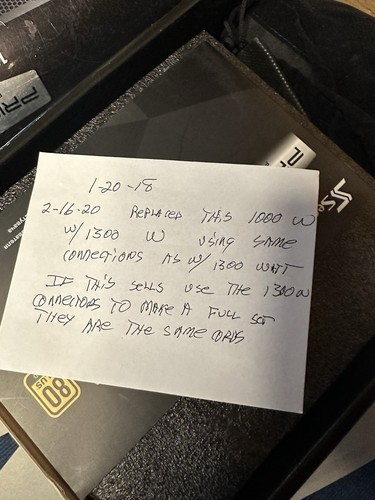 1-20-18
2-16-20 REPLACED THIS 1000 W
W/ 1300 W USING SAME
CONNECTIONS AS W/ 1300 WATT
IF THIS SELLS USE THE 1300W
CONNECTORS TO MAKE A FULL SET
THEY ARE THE SAME CORDS
80
PLUS